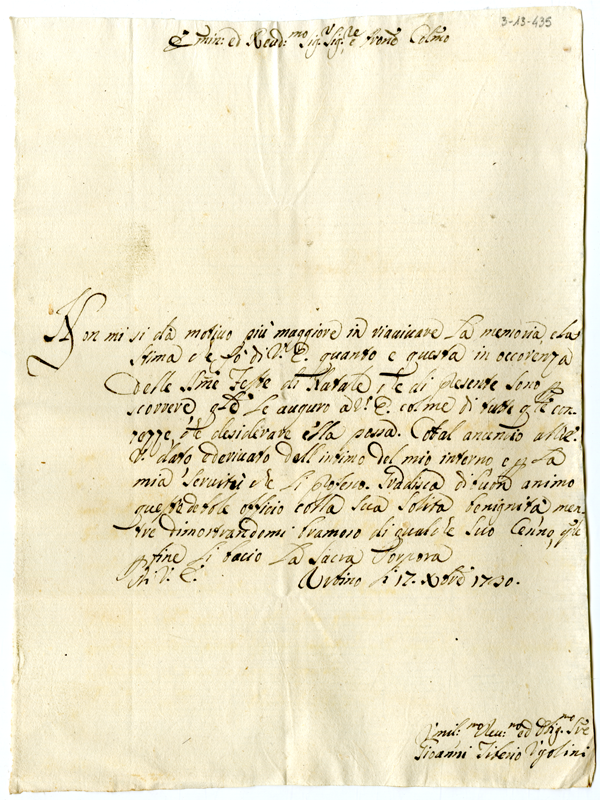 3-13-435
Emin: ed Reud:mo Sig:r Sig:re Prone Colmo
Non mi si dà motivo più maggiore in raviuare la memoria, e la
stima che hò di V. E. quanto e questa in occorenza
delle Sme Feste di Natale, che di presente sono p
scorrere, qle le auguro a V. E. colme di tutte qlle con-
che desiderare ella possa. Total anuntio
dato e deriuato dell'intimo del mio interno, e p la
mia seruitù che li professo. Gradisca di buon animo
queste debole officio colla Sua solita benignità men-
tre dimostrandomi bramoso di qualche Suo Cenno,
fine li bacio la Sacra Porpora
Di V. E. Urbino li 17. Xbre 1730.
Vmil:mo Deu:mo ed Oblig:mo Sre
Gioanni Tiberio Vgolini